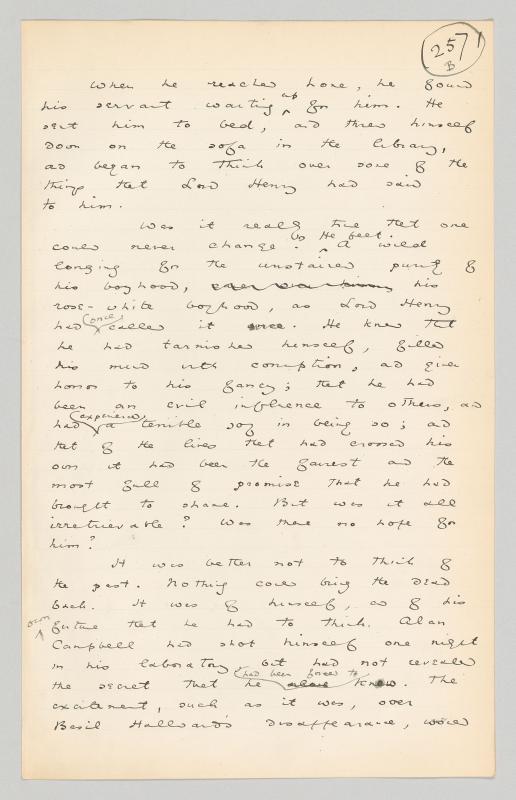 257
B
When he reached home, he found
his servant waiting up for him. He
sent him to bed, and threw himself
down on the sofa in the library,
and began to think over some of the
things that Lord Henry had said
to him.
Was it really true that one
could never change? He felt a wild
longing for the unstained purity of
his boyhood, his
rose-white boyhood, as Lord Henry
had once called it once. He knew that
he had tarnished himself, filled
his mind with corruption, and given
horror to his fancy; that he had
been an evil influence to others, and
had experienced a terrible joy in being so; and
that of the lives that had crossed his
own it had been the fairest and the
most full of promise that he had
brought to shame. But was it all
irretrievable? Was there no hope for
him?
It was better not to think of
the past. Nothing could bring the dead
back. It was of himself, and of his
own future that he had to think. Alan
Campbell had shot himself one night
in his laboratory but had not revealed
the secret that he had been forced to alone know. The
excitement, such as it was, over
Basil Hallward's disappearance, would